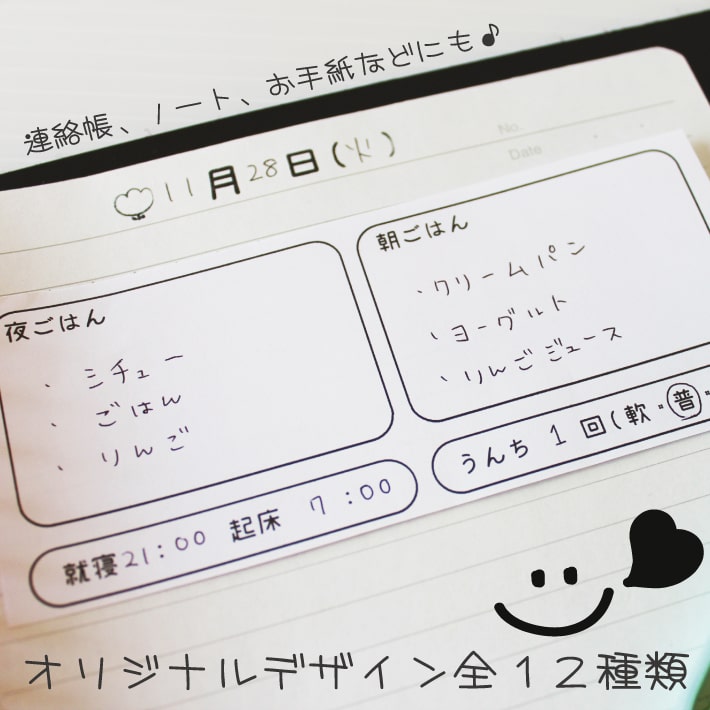 連絡帳、ノート、お手紙などにも♪
No.
Date
11月28日(火)
夜ごはん
・シチュー
・ごはん
・りんご
朝ごはん
・クリームパン
・ヨーグルト
・りんごジュース
就寝21:00 起床 7:00
うんち 1回(軟・普・
オリジナルデザイン全12種類